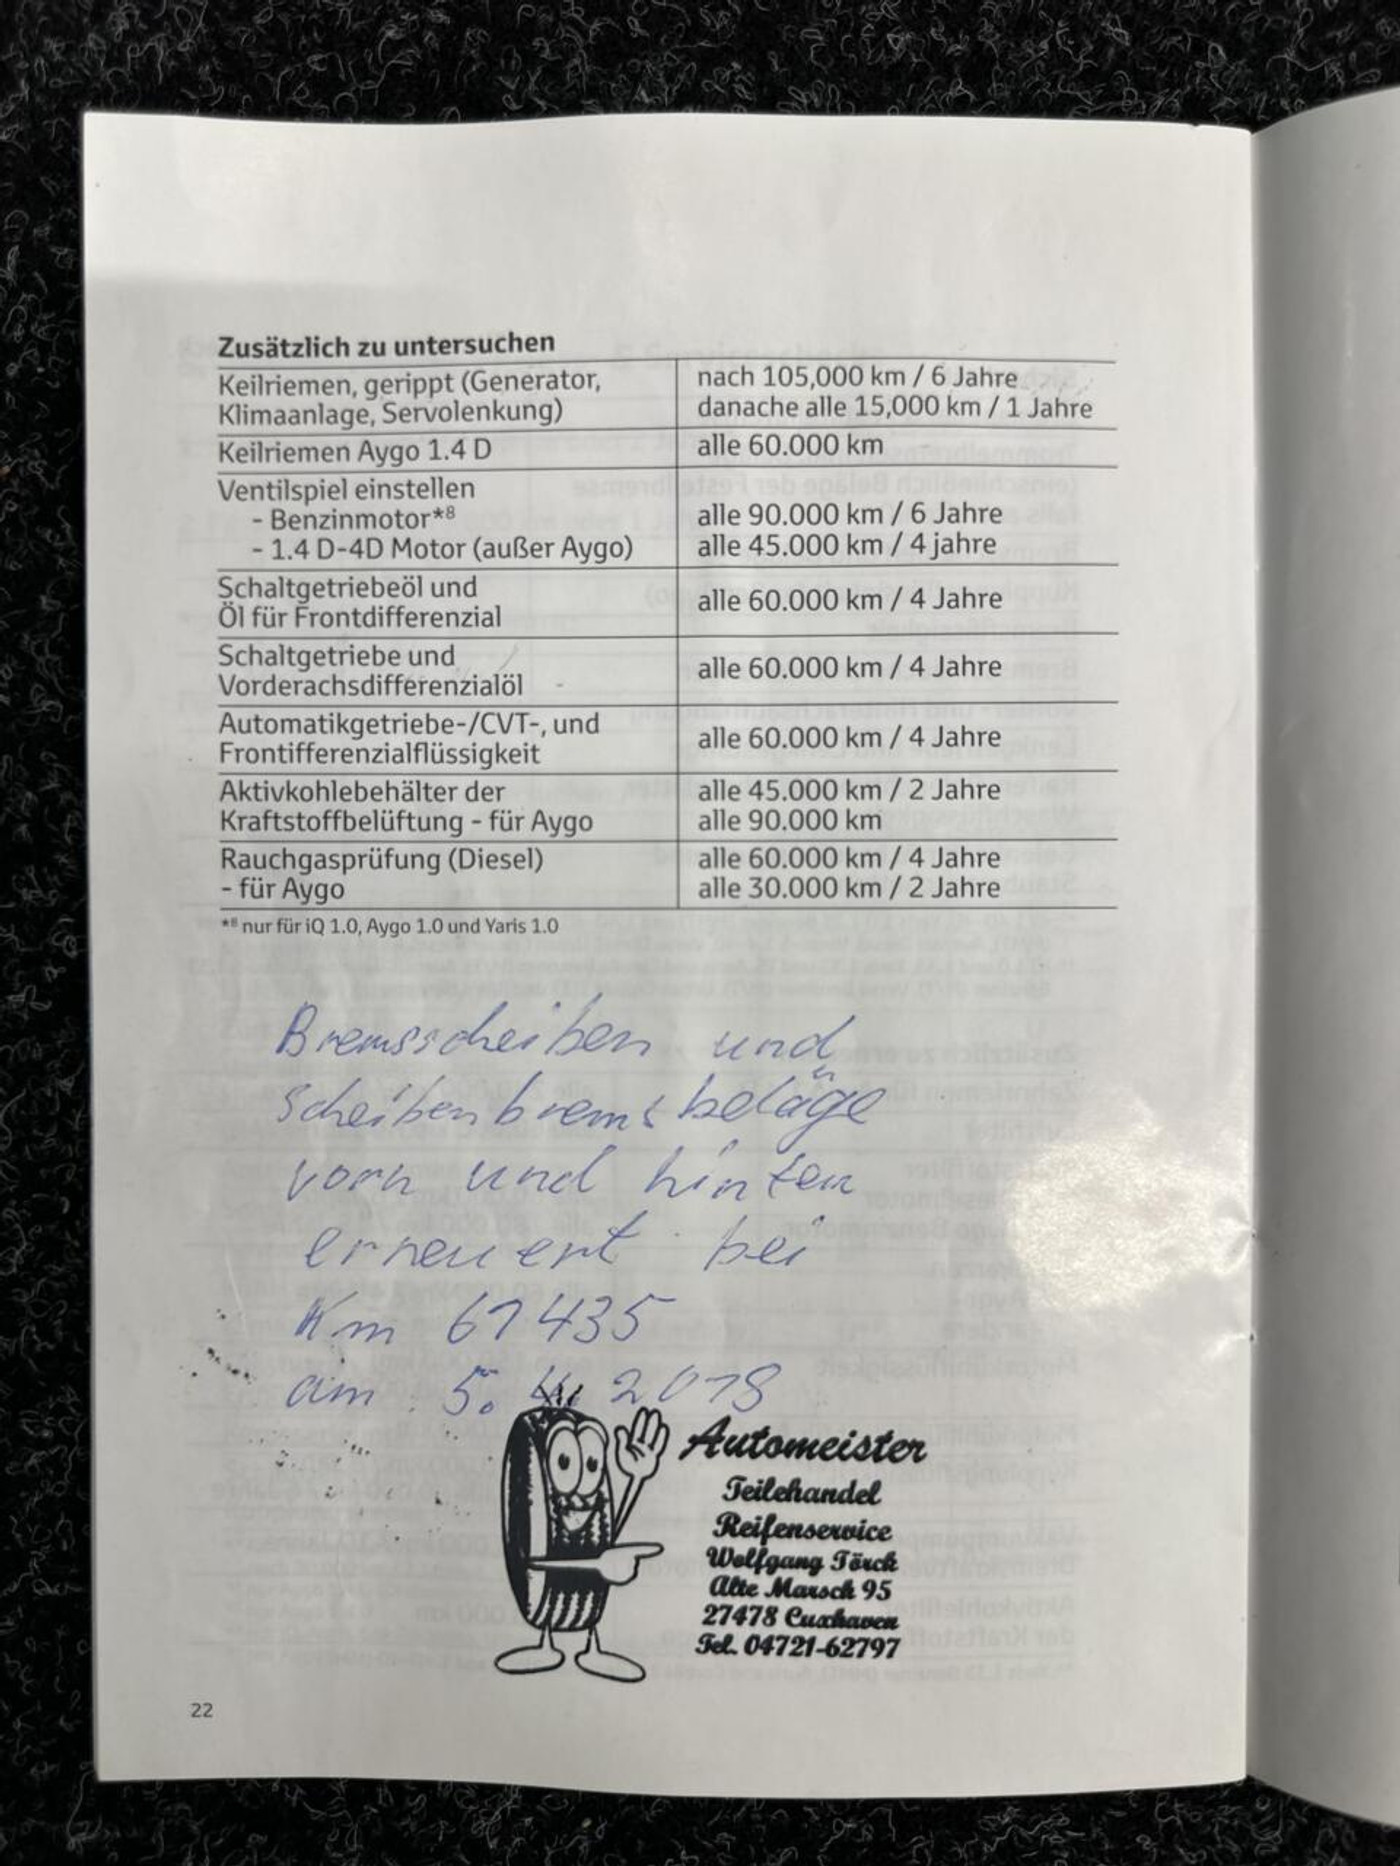 Zusätzlich zu untersuchen
Keilriemen, gerippt (Generator, nach 105,000 km / 6 Jahre
Klimaanlage, Servolenkung) danache alle 15,000 km / 1 Jahre
Keilriemen Aygo 1.4 D alle 60.000 km
Ventilspiel einstellen
- Benzinmotor*8 alle 90.000 km / 6 Jahre
- 1.4 D-4D Motor (außer Aygo) alle 45.000 km / 4 jahre
Schaltgetriebeöl und
Öl für Frontdifferenzial alle 60.000 km / 4 Jahre
Schaltgetriebe und
Vorderachsdifferenzialöl alle 60.000 km / 4 Jahre
Automatikgetriebe-/CVT-, und
Frontifferenzialflüssigkeit alle 60.000 km / 4 Jahre
Aktivkohlebehälter der alle 45.000 km / 2 Jahre
Kraftstoffbelüftung - für Aygo alle 90.000 km
Rauchgasprüfung (Diesel) alle 60.000 km / 4 Jahre
- für Aygo alle 30.000 km / 2 Jahre
*8 nur für iQ 1.0, Aygo 1.0 und Yaris 1.0
Bremsscheiben und
Scheibenbremsbeläge
vorn und hinten
erneuert bei
Km 61435
am 5. 4. 2018
Automeister
Teilehandel
Reifenservice
Wolfgang Törck
Alte Marsch 95
27478 Cuxhaven
Tel. 04721-62797
22